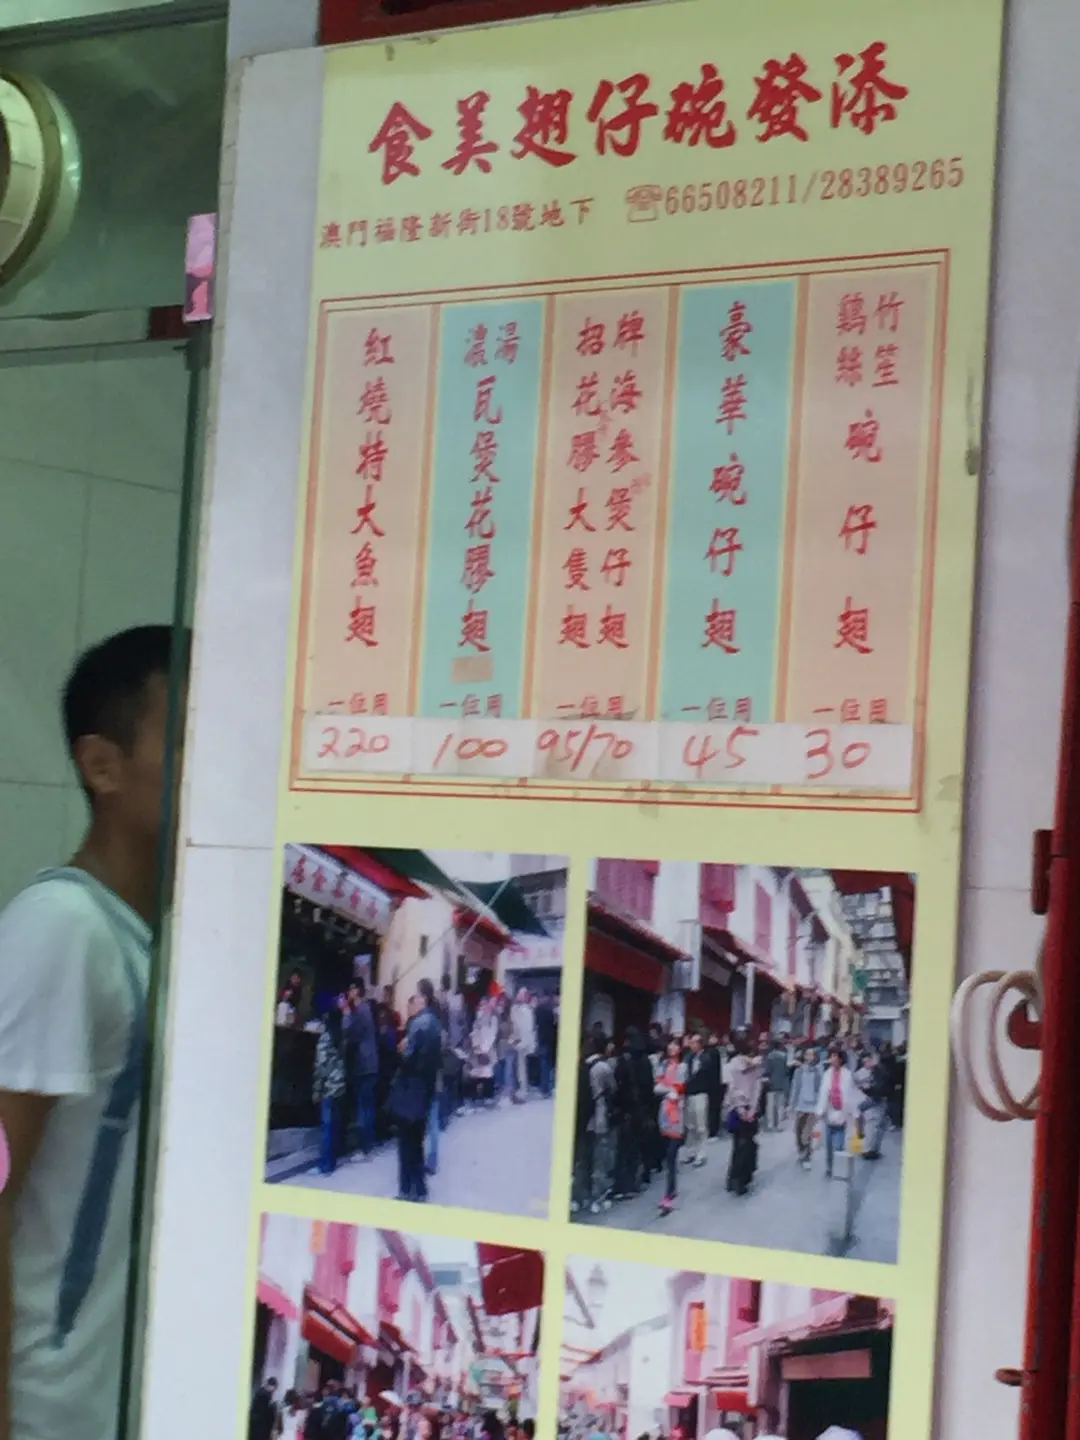 食美翅仔碗發添
澳門福隆新街18號地下 ☎66508211/28389265
鷄絲竹笙碗仔翅
一位用
30
豪華碗仔翅
一位用
45
招牌海參煲仔翅
花膠大隻翅
一位用
95/70
濃湯瓦煲花膠翅
一位用
100
紅燒特大魚翅
一位用
220